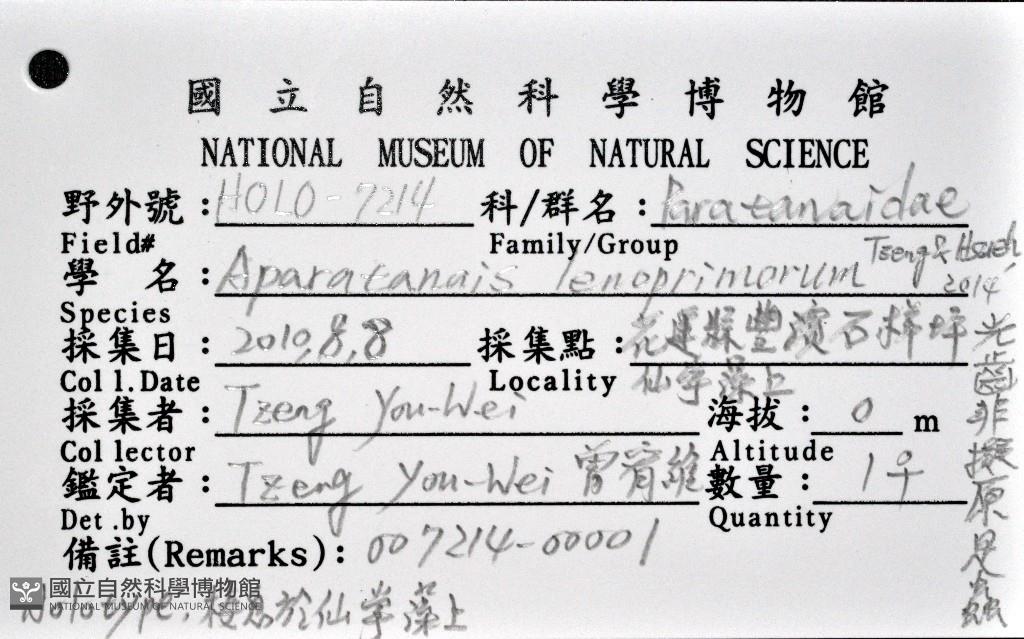 國立自然科學博物館
NATIONAL MUSEUM OF NATURAL SCIENCE
野外號: HOLO-7214 科/群名: Paratanaidae
Field# Family/Group
Tzeng & Hsieh, 2014
學 名: Aparatanais lenoprimorum
Species
採集日: 2010.8.8 採集點: 花蓮縣豐濱石梯坪
仙掌藻上
Coll.Date Locality
採集者: Tzeng You-Wei 海拔: 0 m
Collector Altitude
鑑定者: Tzeng You-Wei 曾宥維 數量: 1♀
Det.by Quantity
備註(Remarks): 007214-00001
Holotype, 棲息於仙掌藻上
光齒非擬原足蟲
國立自然科學博物館
NATIONAL MUSEUM OF NATURAL SCIENCE